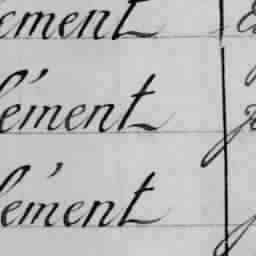 cment
lément
lément